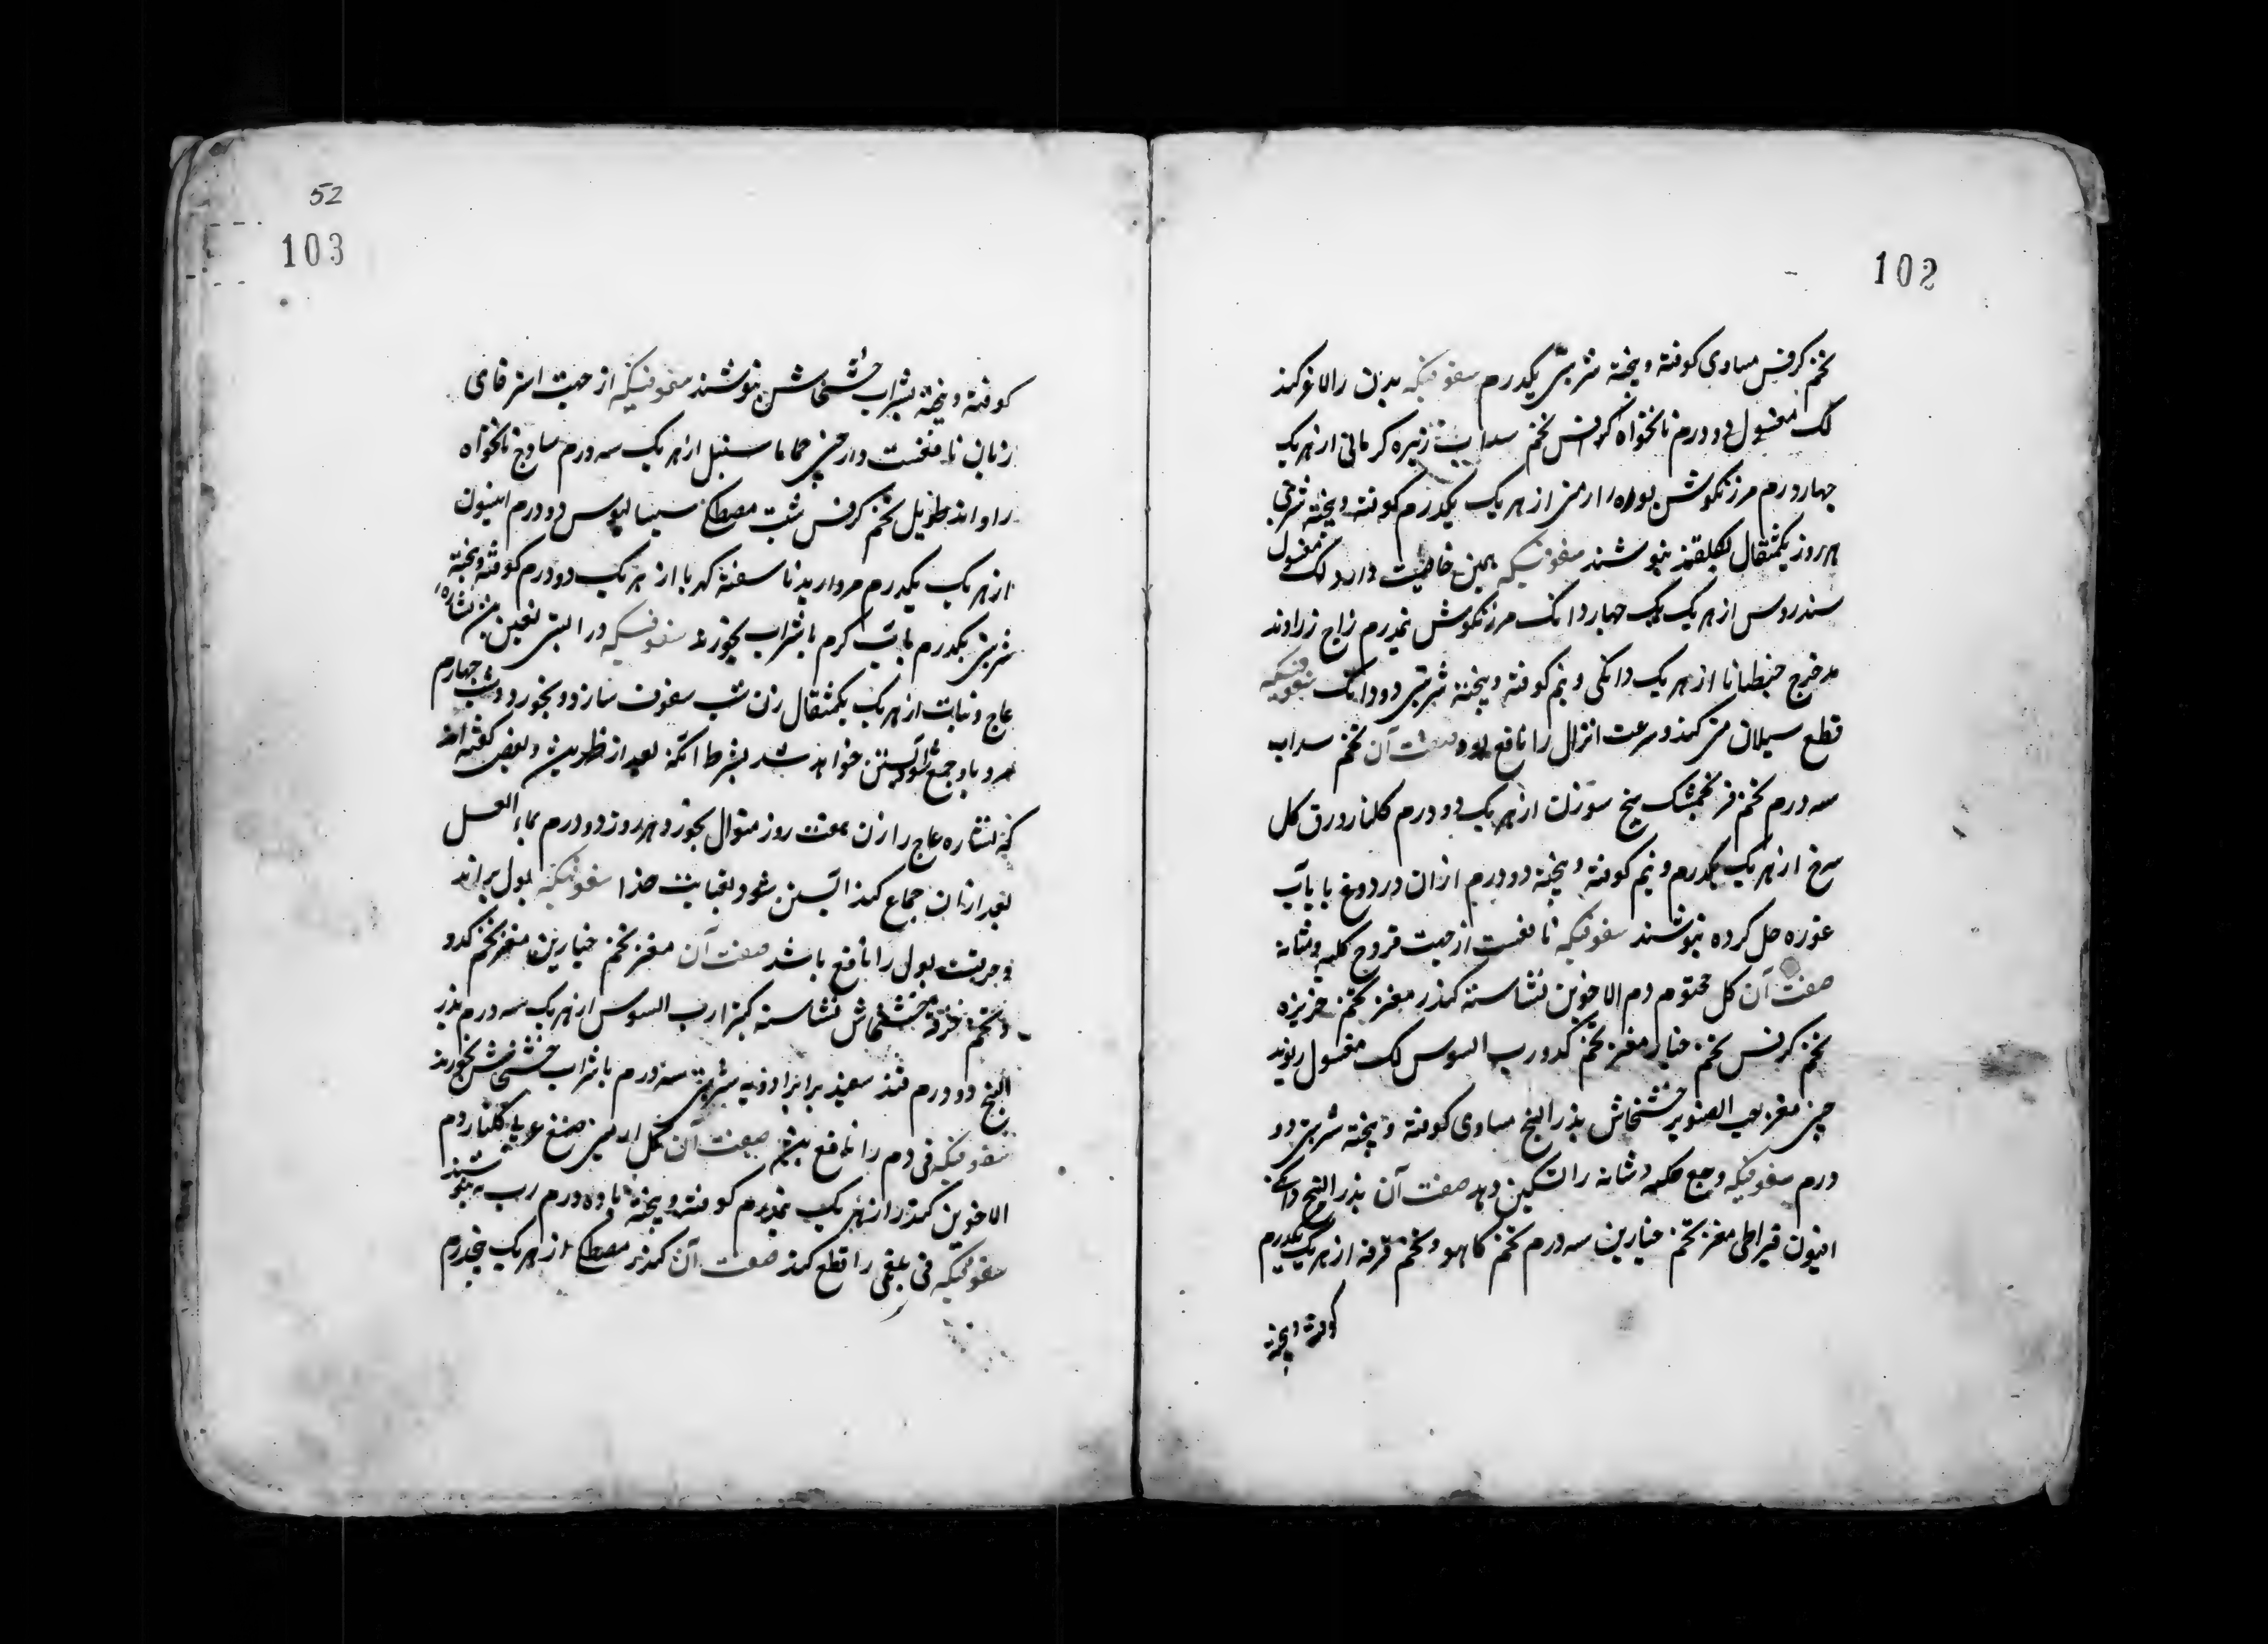 102
تخم کرفس مساوی کوفته و بیخته شربتی یکدرم سفوفیکه بدن را لاغر کند
لک مغسول دو درم نانخواه کرفس تخم سداب زیره کرمانی از هر یک
چهار درم مرزنکوش بوره ارمنی از هر یک یکدرم کوفته و بیخته شربتی
هر روز یکمثقال بنوشند سفوفیکه همین خاصیت دارد لک مغسول
سندروس از هر یک چهار دانک مرزنکوش نیمدرم زاج زراوند
مدحرج جنطیانا از هر یک دانکی و نیم کوفته و بیخته شربتی دو دانک سفوفیکه
قطع سیلان منی کند و سرعت انزال را نافع بود صفت آن تخم سداب
سه درم تخم فرنجمشک بیخ سوزن از هر یک دو درم کلنار ورق کل
سرخ از هر یک یکدرم و نیم کوفته و بیخته دو درم ازان در دوغ یا بآب
غوره حل کرده بنوشند سفوفیکه نافعست از جهت قروح کلیه و مثانه
صفت آن کل مختوم دم الاخوین نشاسته کندر مغز تخم خربزه
تخم کرفس تخم خیار مغز تخم کدو رب السوس لک مغسول ریوند
چینی مغز حب الصنوبر خشخاش بذر البنج مساوی کوفته و بیخته شربتی دو
درم سفوفیکه وجع کلیه و مثانه را تسکین دهد صفت آن بذر البنج دانکی
افیون قیراطی مغز تخم خیارین سه درم تخم کاهو و تخم خرفه از هر یک یکدرم
کوفته و بیخته
52
103
کوفته و بیخته بشراب خشخاش بنوشند سفوفیکه از جهت استرخای
زنان نافعست دارچینی حماما سنبل از هر یک سه درم ساذج نانخواه
راوند طویل تخم کرفس شبت مصطکی سیسالیوس دو درم افیون
از هر یک یکدرم مروارید ناسفته کهربا از هر یک دو درم کوفته و بیخته
شربتی یکدرم بآب کرم یا شراب بخورند سفوفیکه در آبستنی نشاره
عاج و نبات از هر یک یکمثقال زن شب سفوف سازد و بخورد و شب چهارم
مرد با او جمع شود آبستن خواهد شد بشرط آنکه بعد از طهر و بعضی کفته اند
که نشاره عاج را زن هفت روز متوال بخورد هر روز دو درم بماء العسل
بعد ازان جماع کند آبستن شود بعنایت خدا سفوفیکه بول براند
و حرقت بول را نافع باشد صفت آن مغز تخم خیارین مغز تخم کدو
و تخم خرفه خشخاش نشاسته کتیرا رب السوس از هر یک سه درم بذر
البنج دو درم قند سفید برابر ادویه شربتی سه درم با شراب خشخاش بخورند
سفوفیکه قی دم را نافع صفت آن کل ارمنی صمغ عربی کلنار دم
الاخوین کندر از هر یک نیمدرم کوفته و بیخته با ده درم رب به بنوشند
سفوفیکه قی بلغمی را قطع کند صفت آن کندر مصطکی از هر یک پنجدرم